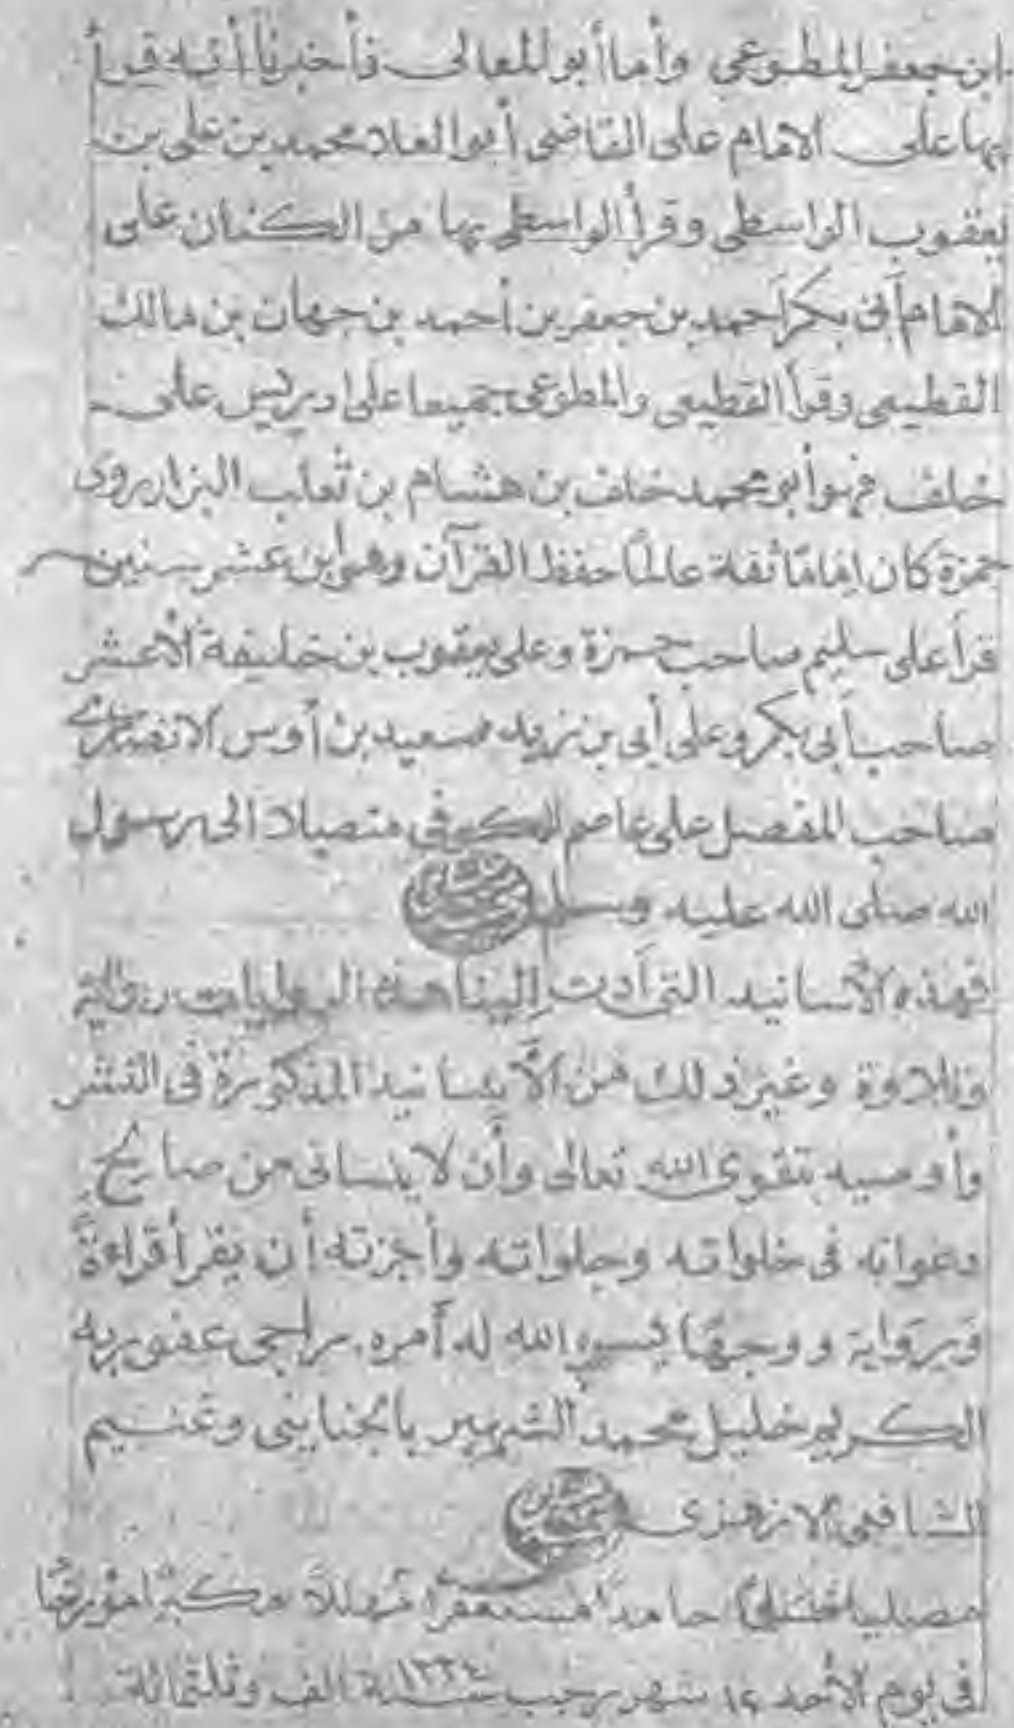 ابن جعفر المطوعي وأما أبو المعالى فأخبرنا أنه قرأ
بها على الامام على القاضى أبو العلا محمد بن على بن
يعقوب الواسطى وقرأ الواسطى بها من الكتاب على
الامام أبى بكر أحمد بن جعفر بن أحمد بن حمدان بن مالك
القطيعى وقرأ القطيعى والمطوعى جميعا على ادريس على
خلف فهو أبو محمد خلف بن هشام بن ثعلب البزار روى
حمزة كان إمامًا ثقة عالمًا حفظ القرآن وهو ابن عشر سنين
قرأ على سليم صاحب حمزة وعلى يعقوب بن خليفة الأعشى
صاحب أبى بكر وعلى أبى بن زيد سعيد بن أوس الانصارى
صاحب المفضل على عاصم الكوفى متصلا الى رسول
الله صلى الله عليه وسلم
فهذه الأسانيد التى أدت إلينا هذه الروايات رواية
وتلاوة وغير ذلك من الأسانيد المذكورة فى النشر
وأوصيه بتقوى الله تعالى وأن لا ينسانى من صالح
دعواته فى خلواته وجلواته وأجزته أن يقرأ قراءةً
ورواية ووجهًا يسر الله له أمره راجى عفو ربه
الكريم خليل محمد الشهير بالجنايني وغنيم
الشافعى الازهرى
مصليا حامدا مستغفرا مهللا مكبرا مؤرخا
فى يوم الأحد ١٤ شهر رجب سنة ١٣٣٤ الف وثلثمائة